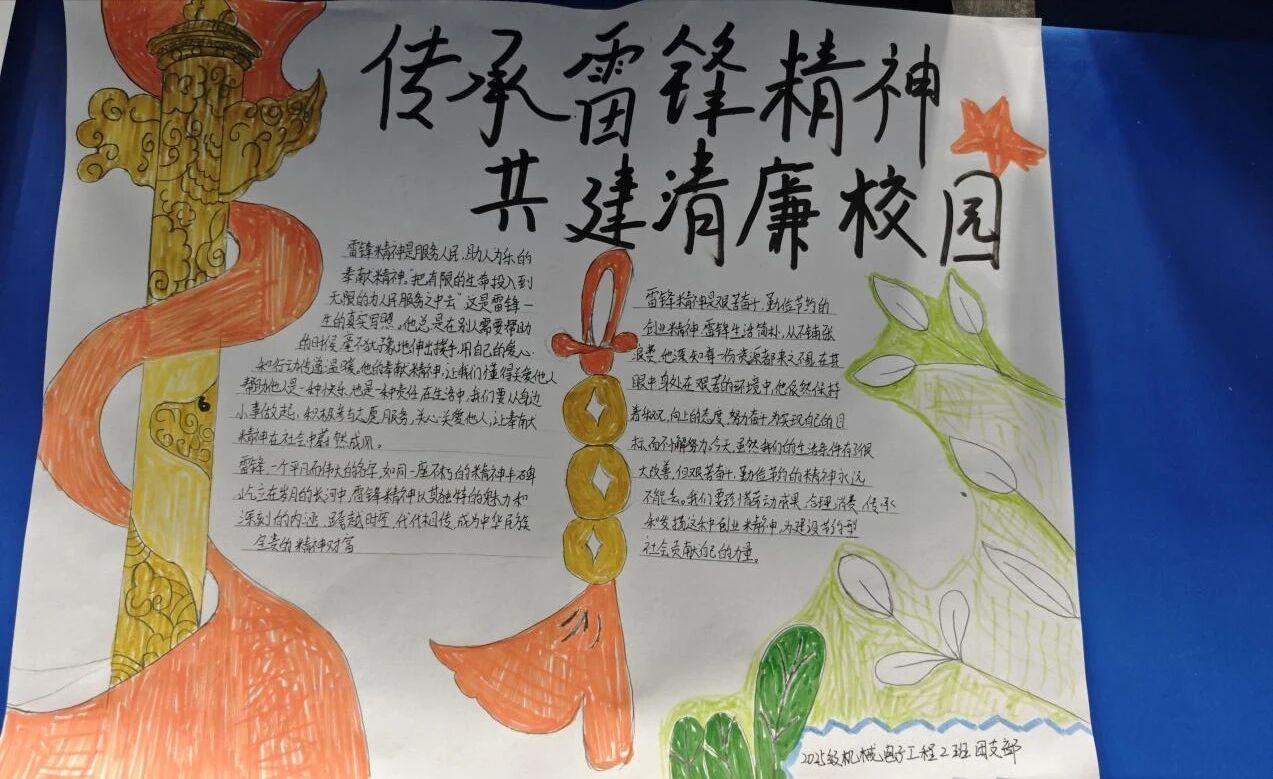 传承雷锋精神
共建清廉校园
雷锋精神是服务人民、助人为乐的
奉献精神。"把有限的生命投入到
无限的为人民服务之中去"这是雷锋一
生的真实写照。他总是在别人需要帮助
的时候毫不犹豫地伸出援手,用自己的爱心
和行动传递温暖。他的奉献精神,让我们懂得关爱他人
帮助他人是一种快乐,也是一种责任,在生活中,我们要从身边
小事做起,积极参与志愿服务,关心关爱他人,让奉献
精神在社会中蔚然成风。
雷锋,一个平凡而伟大的名字,如同一座不朽的精神丰碑
屹立在岁月的长河中,雷锋精神以其独特的魅力和
深刻的内涵,跨越时空,代代相传,成为中华民族
宝贵的精神财富
雷锋精神是艰苦奋斗,勤俭节约的
创业精神.雷锋生活简朴,从不铺张
浪费,他深知每一份资源都来之不易,在其
眼中身处在艰苦的环境中,他依然保持
着乐观,向上的态度,努力奋斗为实现自己的目
标,而不懈努力,今天,虽然我们的生活条件有了很
大改善,但艰苦奋斗,勤俭节约的精神永远
不能丢。我们要珍惜劳动成果,合理消费,传承
和发扬这种创业精神,为建设节约型
社会贡献自己的力量。
2025级机械电子工程2班团支部